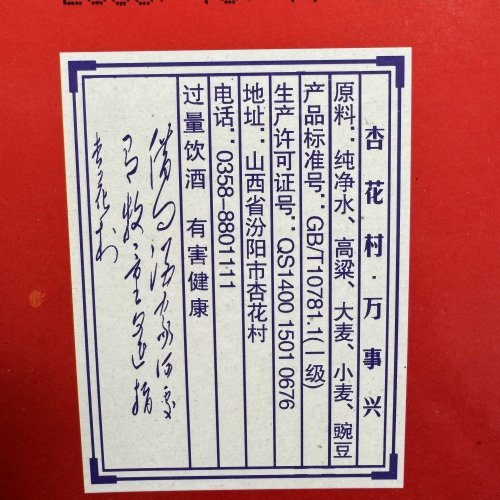 杏花村·万事兴
原料：纯净水、高粱、大麦、小麦、豌豆
产品标准号：GB/T10781.1(Ⅰ级)
生产许可证号：QS1400 1501 0676
地址：山西省汾阳市杏花村
电话：0358-8801111
过量饮酒 有害健康
借问酒家何处
有牧童遥指
杏花村